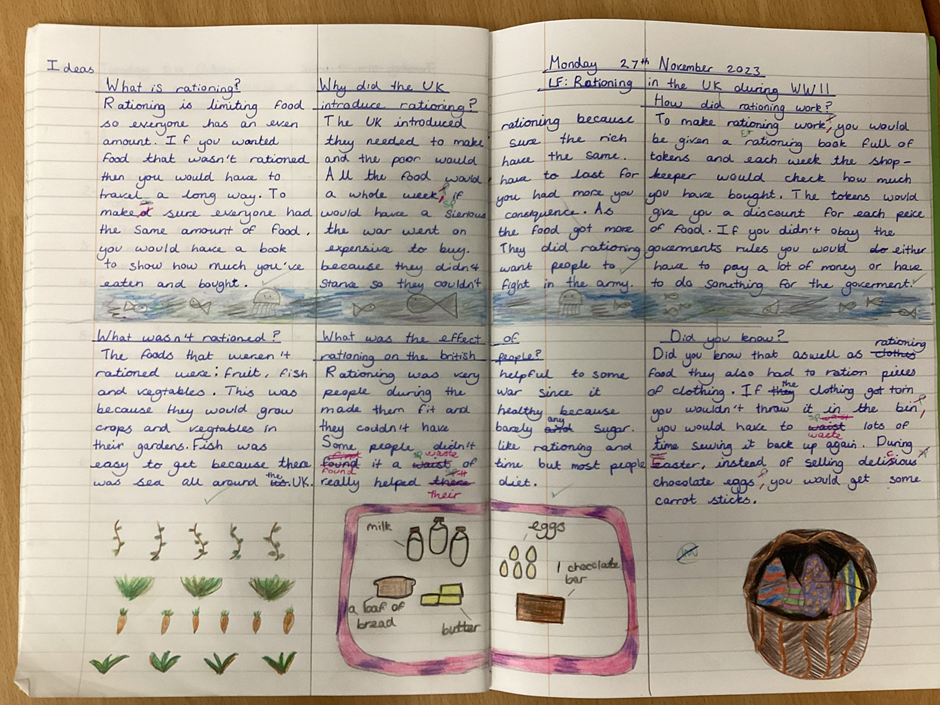 Ideas
Monday 27th November 2023
LF: Rationing in the UK during WW11
What is rationing?
Rationing is limiting food
so everyone has an even
amount. If you wanted
food that wasn't rationed
then you would have to
travel a long way. To
make sure everyone had
the same amount of food,
you would have a book
to show how much you've
eaten and bought.
Why did the UK
introduce rationing?
The UK introduced rationing because
they needed to make sure the rich
and the poor would have the same.
All the food would have to last for
a whole week, if you had more you
would have a sierious consequence. As
the war went on the food got more
expensive to buy. They did rationing
because they didn't want people to
so they couldn't fight in the army.
How did rationing work?
To make rationing work, you would
be given a rationing book full of
tokens and each week the shop-
keeper would check how much
you have bought. The tokens would
give you a discount for each peice
of food. If you didn't obay the
goverments rules you would either
have to pay a lot of money or have
to do something for the goverment.
What wasn't rationed?
The foods that weren't
rationed were: fruit, fish
and vegtables. This was
because they would grow
crops and vegtables in
their gardens. Fish was
easy to get because there
was sea all around the UK.
What was the effect of
rationing on the british people?
Rationing was very helpful to some
people during the war since it
made them fit and healthy because
they couldn't have barely any sugar.
Some people didn't like rationing and
found it a waste of time but most people
really helped their diet.
Did you know?
Did you know that aswell as rationing
food they also had to ration pieces
of clothing. If the clothing got torn,
you wouldn't throw it in the bin,
you would have to waste lots of
time sewing it back up again. During
Easter, instead of selling delicious
chocolate eggs, you would get some
carrot sticks.
milk
eggs
1 chocolate
bar
a loaf of
bread
butter